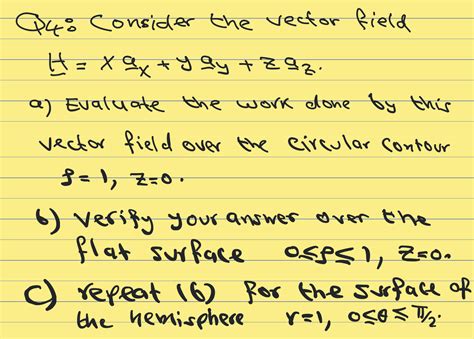 Q4: Consider the vector field
H = x a_x + y a_y + z a_z.
a) Evaluate the work done by this
vector field over the circular contour
ρ = 1, z=0.
b) Verify your answer over the
flat surface 0≤ρ≤1, z=0.
c) repeat (b) for the surface of
the hemisphere r=1, 0≤θ≤π/2.